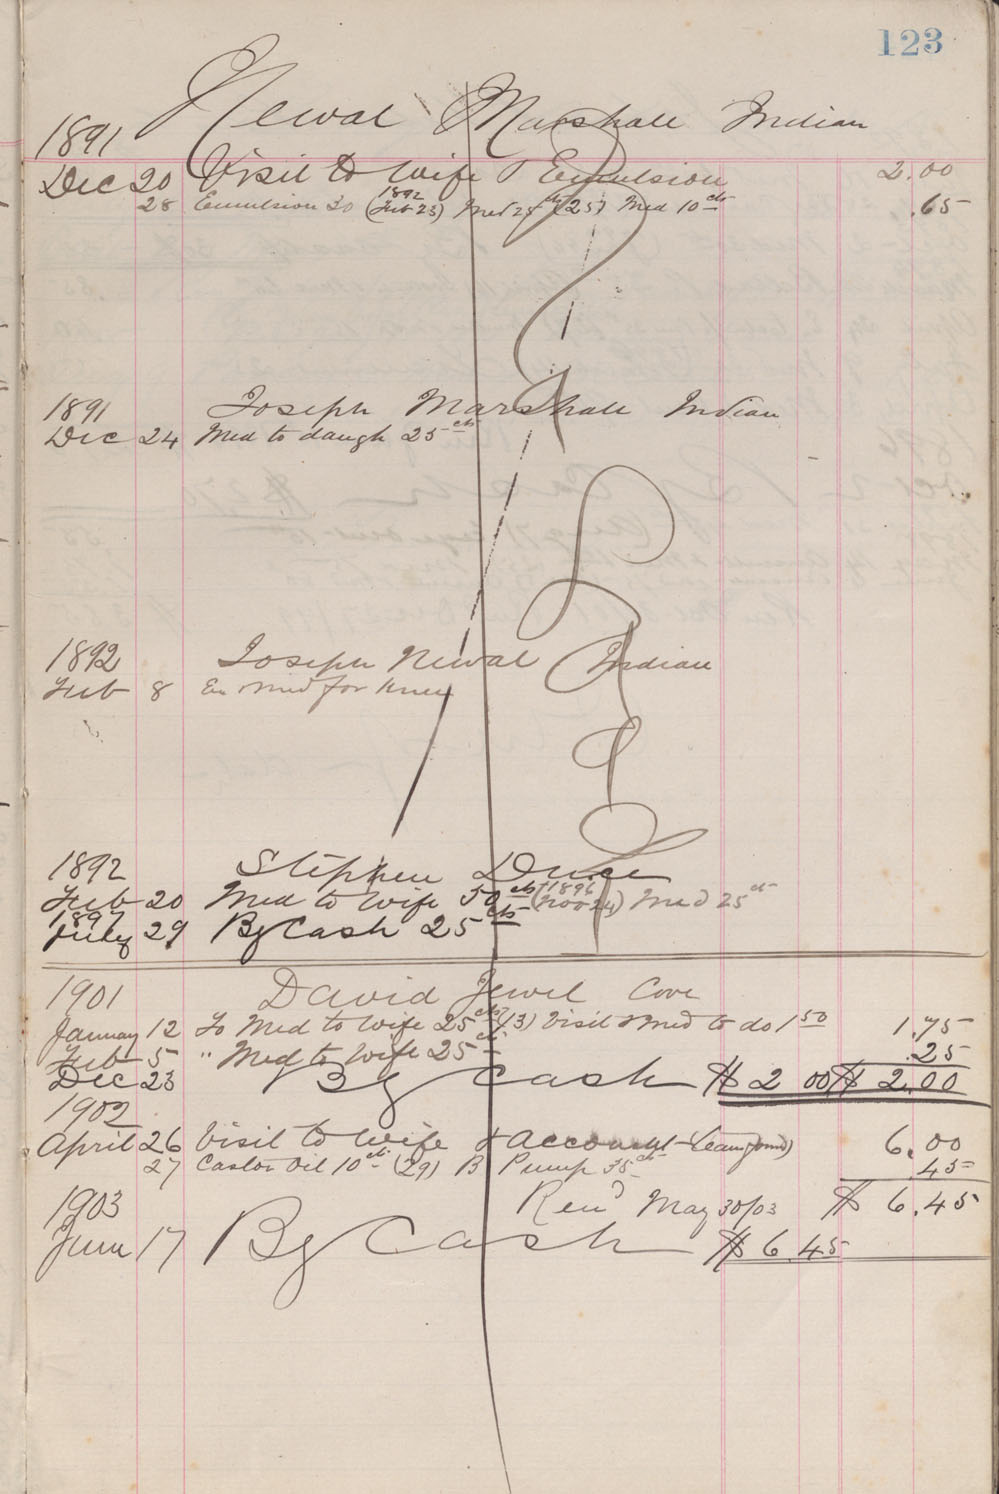 123
Newal Marshall Indian
1891
Dec 20 Visit to wife & Emulsion 2.00
28 Emulsion 30 (1892 Feb 23) Med 25 cts (25) Med 10 cts .65
1891 Joseph Marshall Indian
Dec 24 Med to daugh 25 cts
1892 Joseph Newal Indian
Feb 8 Ex & med for knee
1892 Stephen Druce
Feb 20 Med to wife 50 cts (1896 Nov 24) Med 25 cts
1897
July 29 By Cash 25 cts
1901 David Jewel Cove
January 12 To Med to wife 25 cts (13) Visit & med to do 1 50 1.75
Feb 5 " Med to wife 25 cts .25
Dec 23 By Cash $2 00 $2.00
1902
April 26 Visit to wife & 6.00
27 Castor Oil 10 cts (29) B Pump 35 cts .45
1903 Ren'd May 30/03 $6.45
June 17 By Cash $6.45